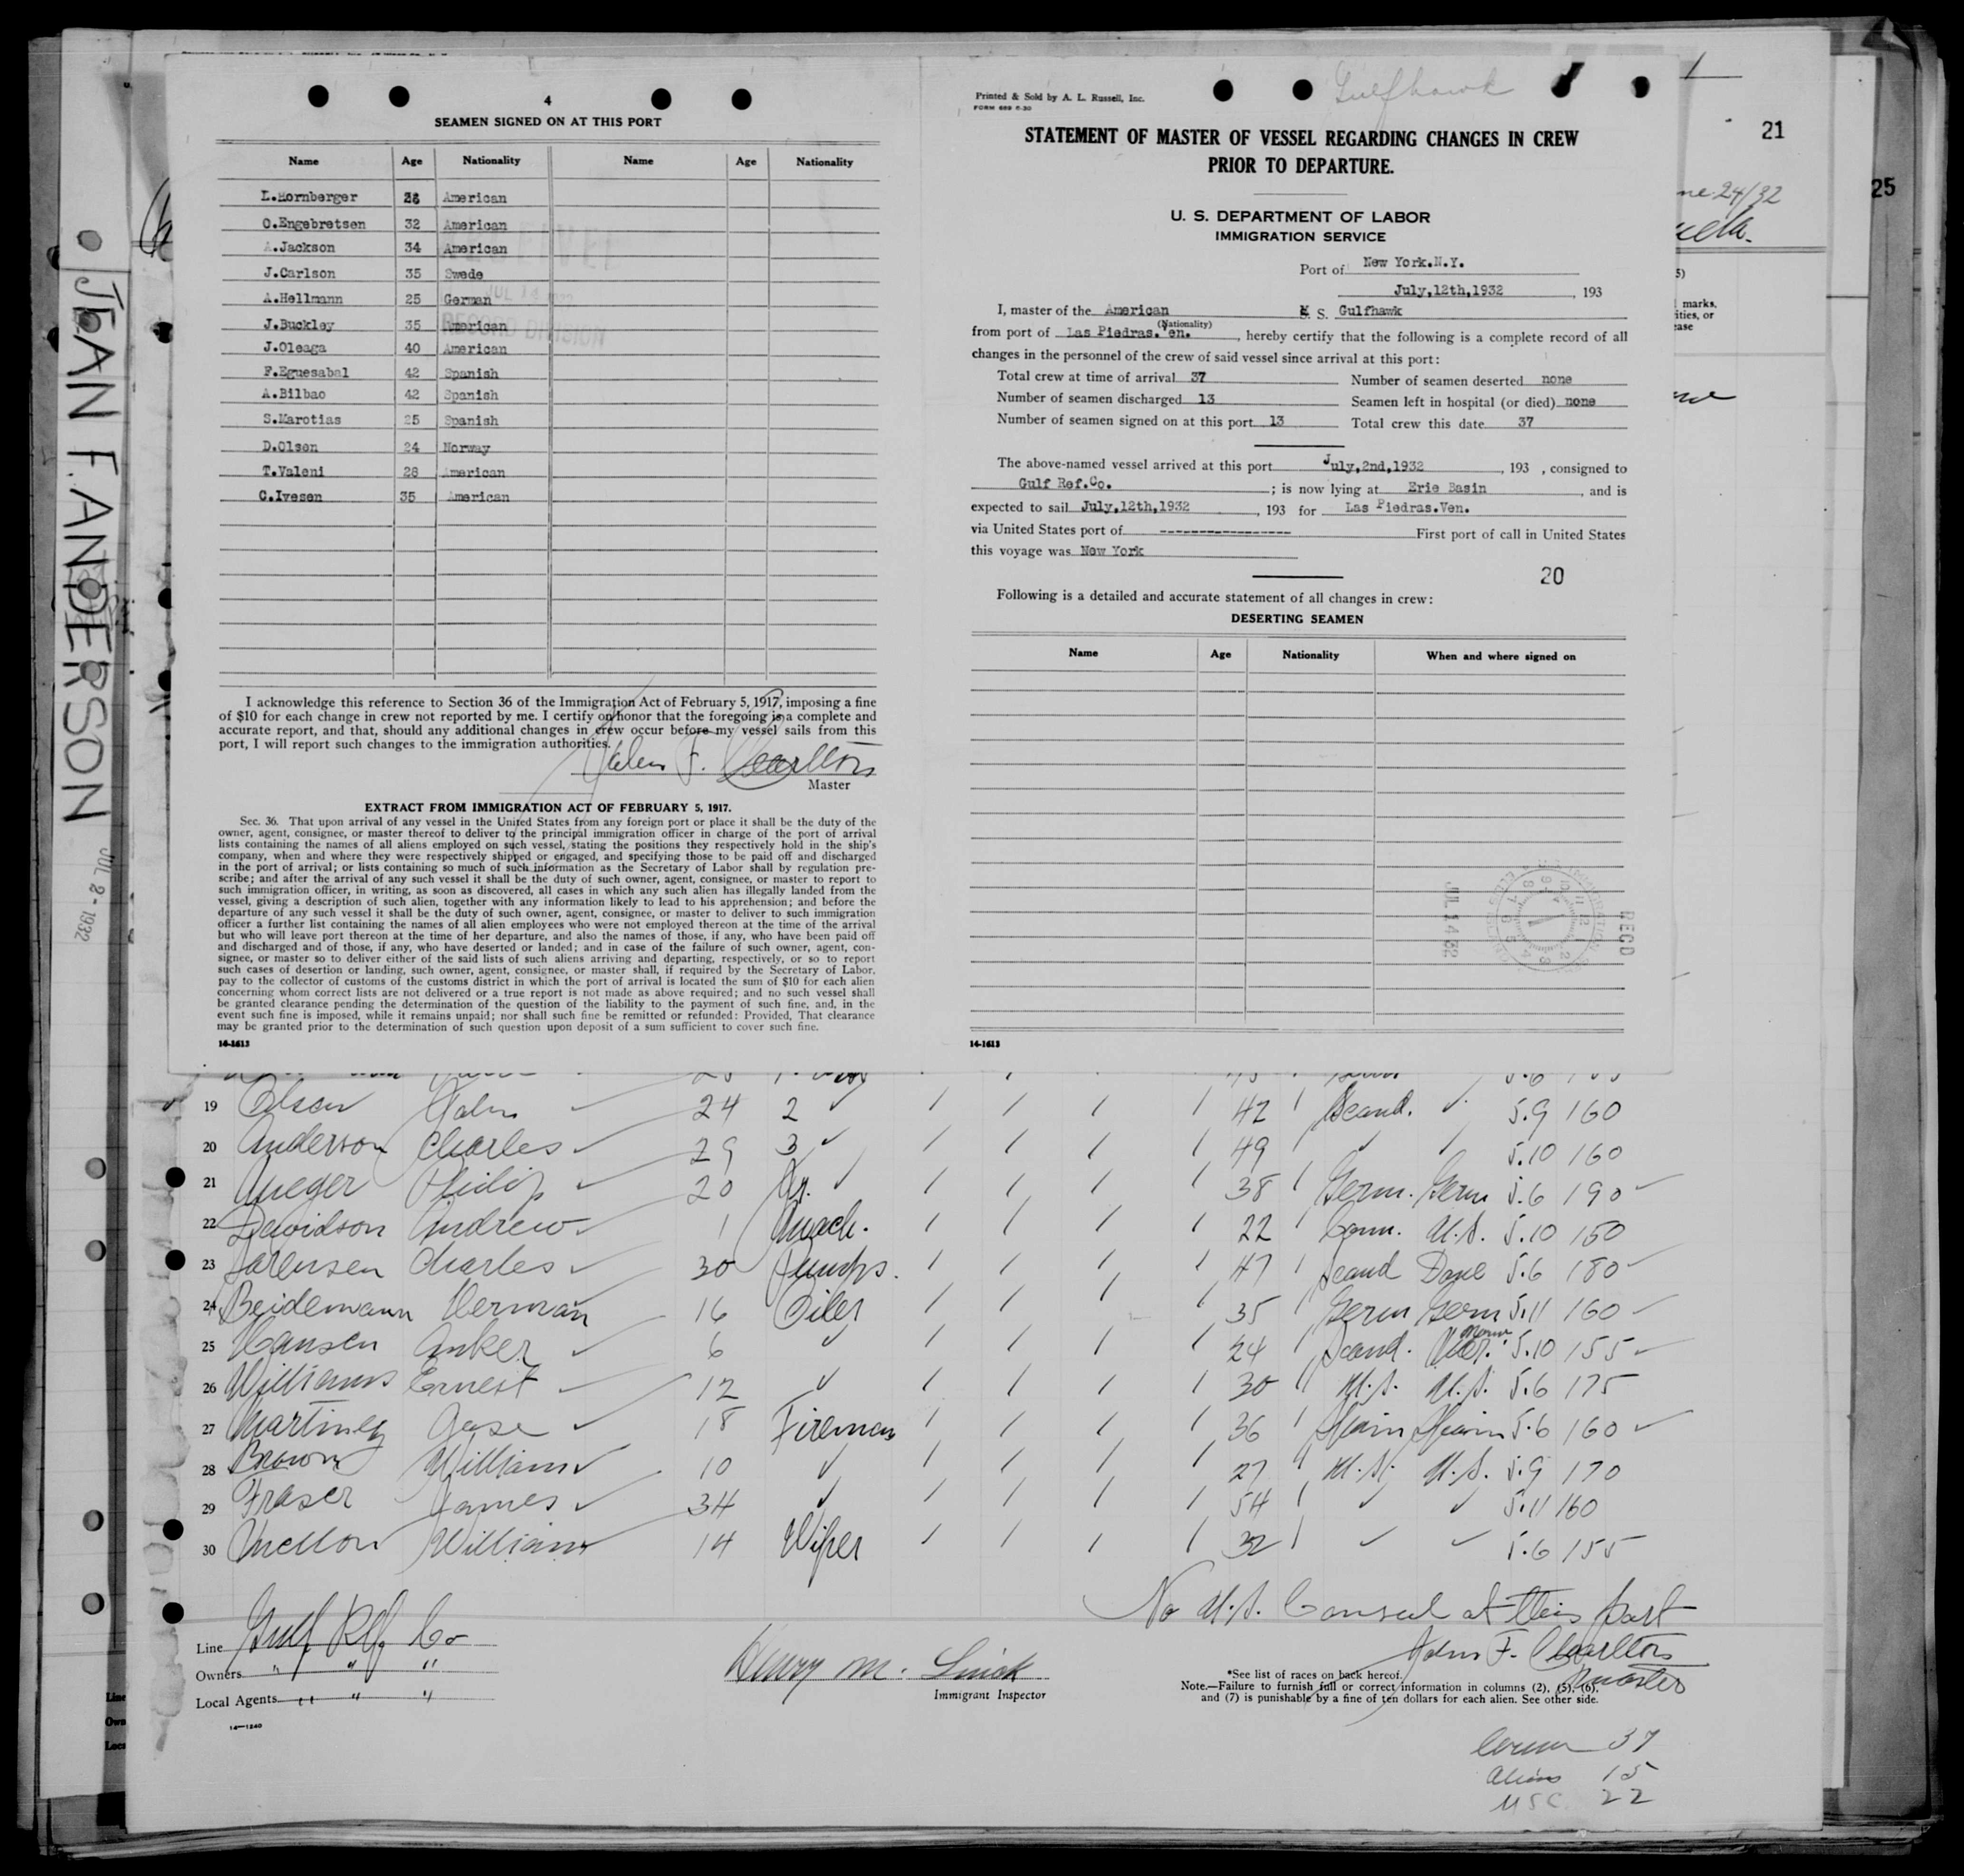 4
SEAMEN SIGNED ON AT THIS PORT
Name Age Nationality Name Age Nationality
L.Hornberger American
C.Engebretsen 32 American
A.Jackson 34 American
J.Carlson 35 Swede
A.Hellmann 25 German
J.Buckley 35 American
J.Oleaga 40 American
F.Eguesabal 42 Spanish
A.Bilbao 42 Spanish
S.Marotias 25 Spanish
D.Olsen 24 Norway
T.Valeni 28 American
C.Ivesen 35 American
JUL 14 1932
RECORD DIVISION
I acknowledge this reference to Section 36 of the Immigration Act of February 5, 1917, imposing a fine
of $10 for each change in crew not reported by me. I certify on honor that the foregoing is a complete and
accurate report, and that, should any additional changes in crew occur before my vessel sails from this
port, I will report such changes to the immigration authorities.
F. Charlton
Master
EXTRACT FROM IMMIGRATION ACT OF FEBRUARY 5, 1917.
Sec. 36. That upon arrival of any vessel in the United States from any foreign port or place it shall be the duty of the
owner, agent, consignee, or master thereof to deliver to the principal immigration officer in charge of the port of arrival
lists containing the names of all aliens employed on such vessel, stating the positions they respectively hold in the ship's
company, when and where they were respectively shipped or engaged, and specifying those to be paid off and discharged
in the port of arrival; or lists containing so much of such information as the Secretary of Labor shall by regulation pre-
scribe; and after the arrival of any such vessel it shall be the duty of such owner, agent, consignee, or master to report to
such immigration officer, in writing, as soon as discovered, all cases in which any such alien has illegally landed from the
vessel, giving a description of such alien, together with any information likely to lead to his apprehension; and before the
departure of any such vessel it shall be the duty of such owner, agent, consignee, or master to deliver to such immigration
officer a further list containing the names of all alien employees who were not employed thereon at the time of the arrival
but who will leave port thereon at the time of her departure, and also the names of those, if any, who have been paid off
and discharged and of those, if any, who have deserted or landed; and in case of the failure of such owner, agent, con-
signee, or master so to deliver either of the said lists of such aliens arriving and departing, respectively, or so to report
such cases of desertion or landing, such owner, agent, consignee, or master shall, if required by the Secretary of Labor,
pay to the collector of customs of the customs district in which the port of arrival is located the sum of $10 for each alien
concerning whom correct lists are not delivered or a true report is not made as above required; and no such vessel shall
be granted clearance pending the determination of the question of the liability to the payment of such fine, and, in the
event such fine is imposed, while it remains unpaid; nor shall such fine be remitted or refunded: Provided, That clearance
may be granted prior to the determination of such question upon deposit of a sum sufficient to cover such fine.
14-1613
Gulfhawk
Printed & Sold by A. L. Russell, Inc.
FORM 689 6-30
STATEMENT OF MASTER OF VESSEL REGARDING CHANGES IN CREW
PRIOR TO DEPARTURE.
U. S. DEPARTMENT OF LABOR
IMMIGRATION SERVICE
Port of New York.N.Y.
July,12th,1932, 193
I, master of the American S. S. Gulfhawk
(Nationality)
from port of Las Piedras. Ven., hereby certify that the following is a complete record of all
changes in the personnel of the crew of said vessel since arrival at this port:
Total crew at time of arrival 37 Number of seamen deserted none
Number of seamen discharged 13 Seamen left in hospital (or died) none
Number of seamen signed on at this port 13 Total crew this date 37
The above-named vessel arrived at this port July,2nd,1932, 193 , consigned to
Gulf Ref.Co. ; is now lying at Erie Basin, and is
expected to sail July,12th,1932, 193 for Las Piedras.Ven.
via United States port of ---------------- First port of call in United States
this voyage was New York
20
Following is a detailed and accurate statement of all changes in crew:
DESERTING SEAMEN
Name Age Nationality When and where signed on
REC'D
JUL 14 32
14-1613
21
25
ne 24/32
marks,
ities, or
ease
JEAN F. ANDERSON
JUL 2 - 1932
19 Olsen John 24 2 42 Scand. 5.9 160
20 Anderson Charles 29 3 49 5.10 160
21 Philip 20 38 Germ. Germ 5.6 190
22 Davidson Andrew 1 Mach. 22 U.S. 5.10 150
23 Sorensen Charles 30 Pumps. 47 Scand Dane 5.6 180
24 Beidemann Herman 16 Oiler 35 Germ Germ 5.11 160
25 Hansen Anker 6 24 Scand. 5.10 155
26 Williams Ernest 12 30 U.S. U.S. 5.6 175
27 Martinez Jose 18 Fireman 36 Spain Spain 5.6 160
28 Brown William 10 27 U.S. U.S. 5.9 170
29 Fraser James 34 54 5.11 160
30 Mellon William 14 Wiper 32 5.6 155
No U.S. Consul at this port
John F. Charlton
Master
Line Gulf Ref. Co
Owners " " "
Local Agents " " "
14-1240
Henry M.
Immigrant Inspector
*See list of races on back hereof.
Note.—Failure to furnish full or correct information in columns (2), (5), (6),
and (7) is punishable by a fine of ten dollars for each alien. See other side.
Crew 37
Aliens 15
USC 22
Line
Own
Loca